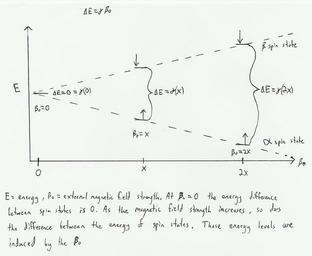 ΔE = γ β₀
β spin state
E
ΔE = 0 = γ(0)
ΔE = γ(x)
ΔE = γ(2x)
β₀ = 0
β₀ = x
β₀ = 2x
α spin state
0
x
2x
β₀
E = energy, β₀ = external magnetic field strength. At β₀ = 0 the energy difference
between spin states is 0. As the magnetic field strength increases, so does
the difference between the energy of spin states. These energy levels are
induced by the β₀